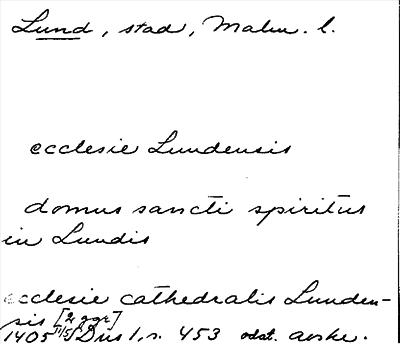 Lund, stad, Malm. l.
ecclesie Lundensis
domus sancti spiritus
in Lundis
ecclesie cathedralis Lunden-
sis [2 ggr]
1405 11/5 DRS 1, s. 453 odat. avskr.